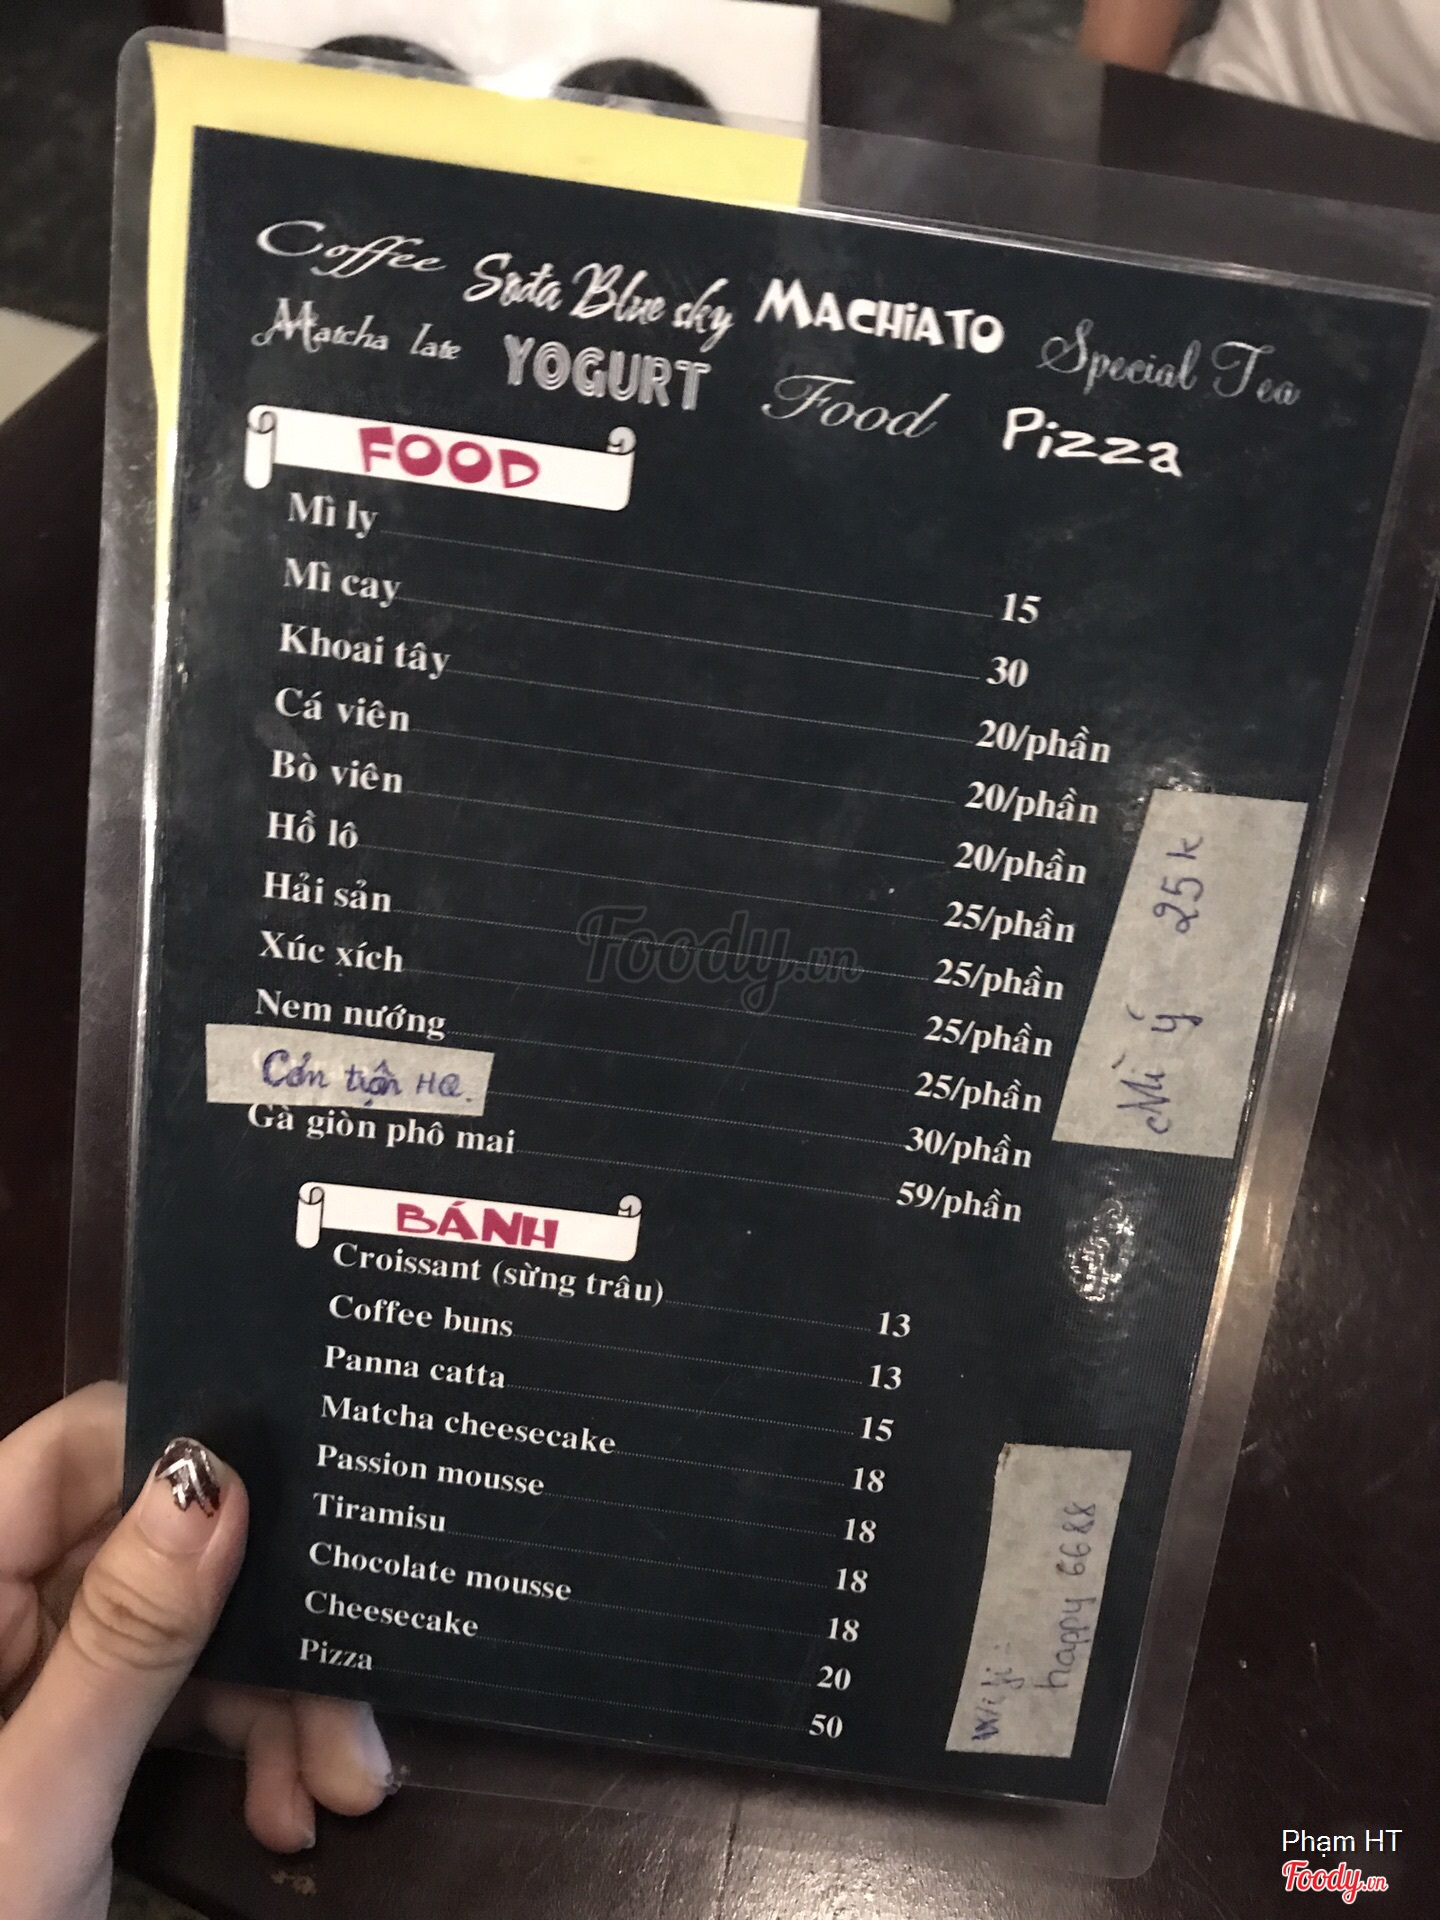 Coffee Sođa Blue sky MACHiATO Special Tea
Matcha late YOGURT Food Pizza
FOOD
Mì ly 15
Mì cay 30
Khoai tây 20/phần
Cá viên 20/phần
Bò viên 20/phần
Hồ lô 25/phần
Hải sản 25/phần
Xúc xích 25/phần
Nem nướng 25/phần
Cơm trộn HQ. 30/phần
Gà giòn phô mai 59/phần
Mì ý 25k
BÁNH
Croissant (sừng trâu) 13
Coffee buns 13
Panna catta 15
Matcha cheesecake 18
Passion mousse 18
Tiramisu 18
Chocolate mousse 18
Cheesecake 20
Pizza 50
happy 6688
Foody.vn
Phạm HT
Foody.vn